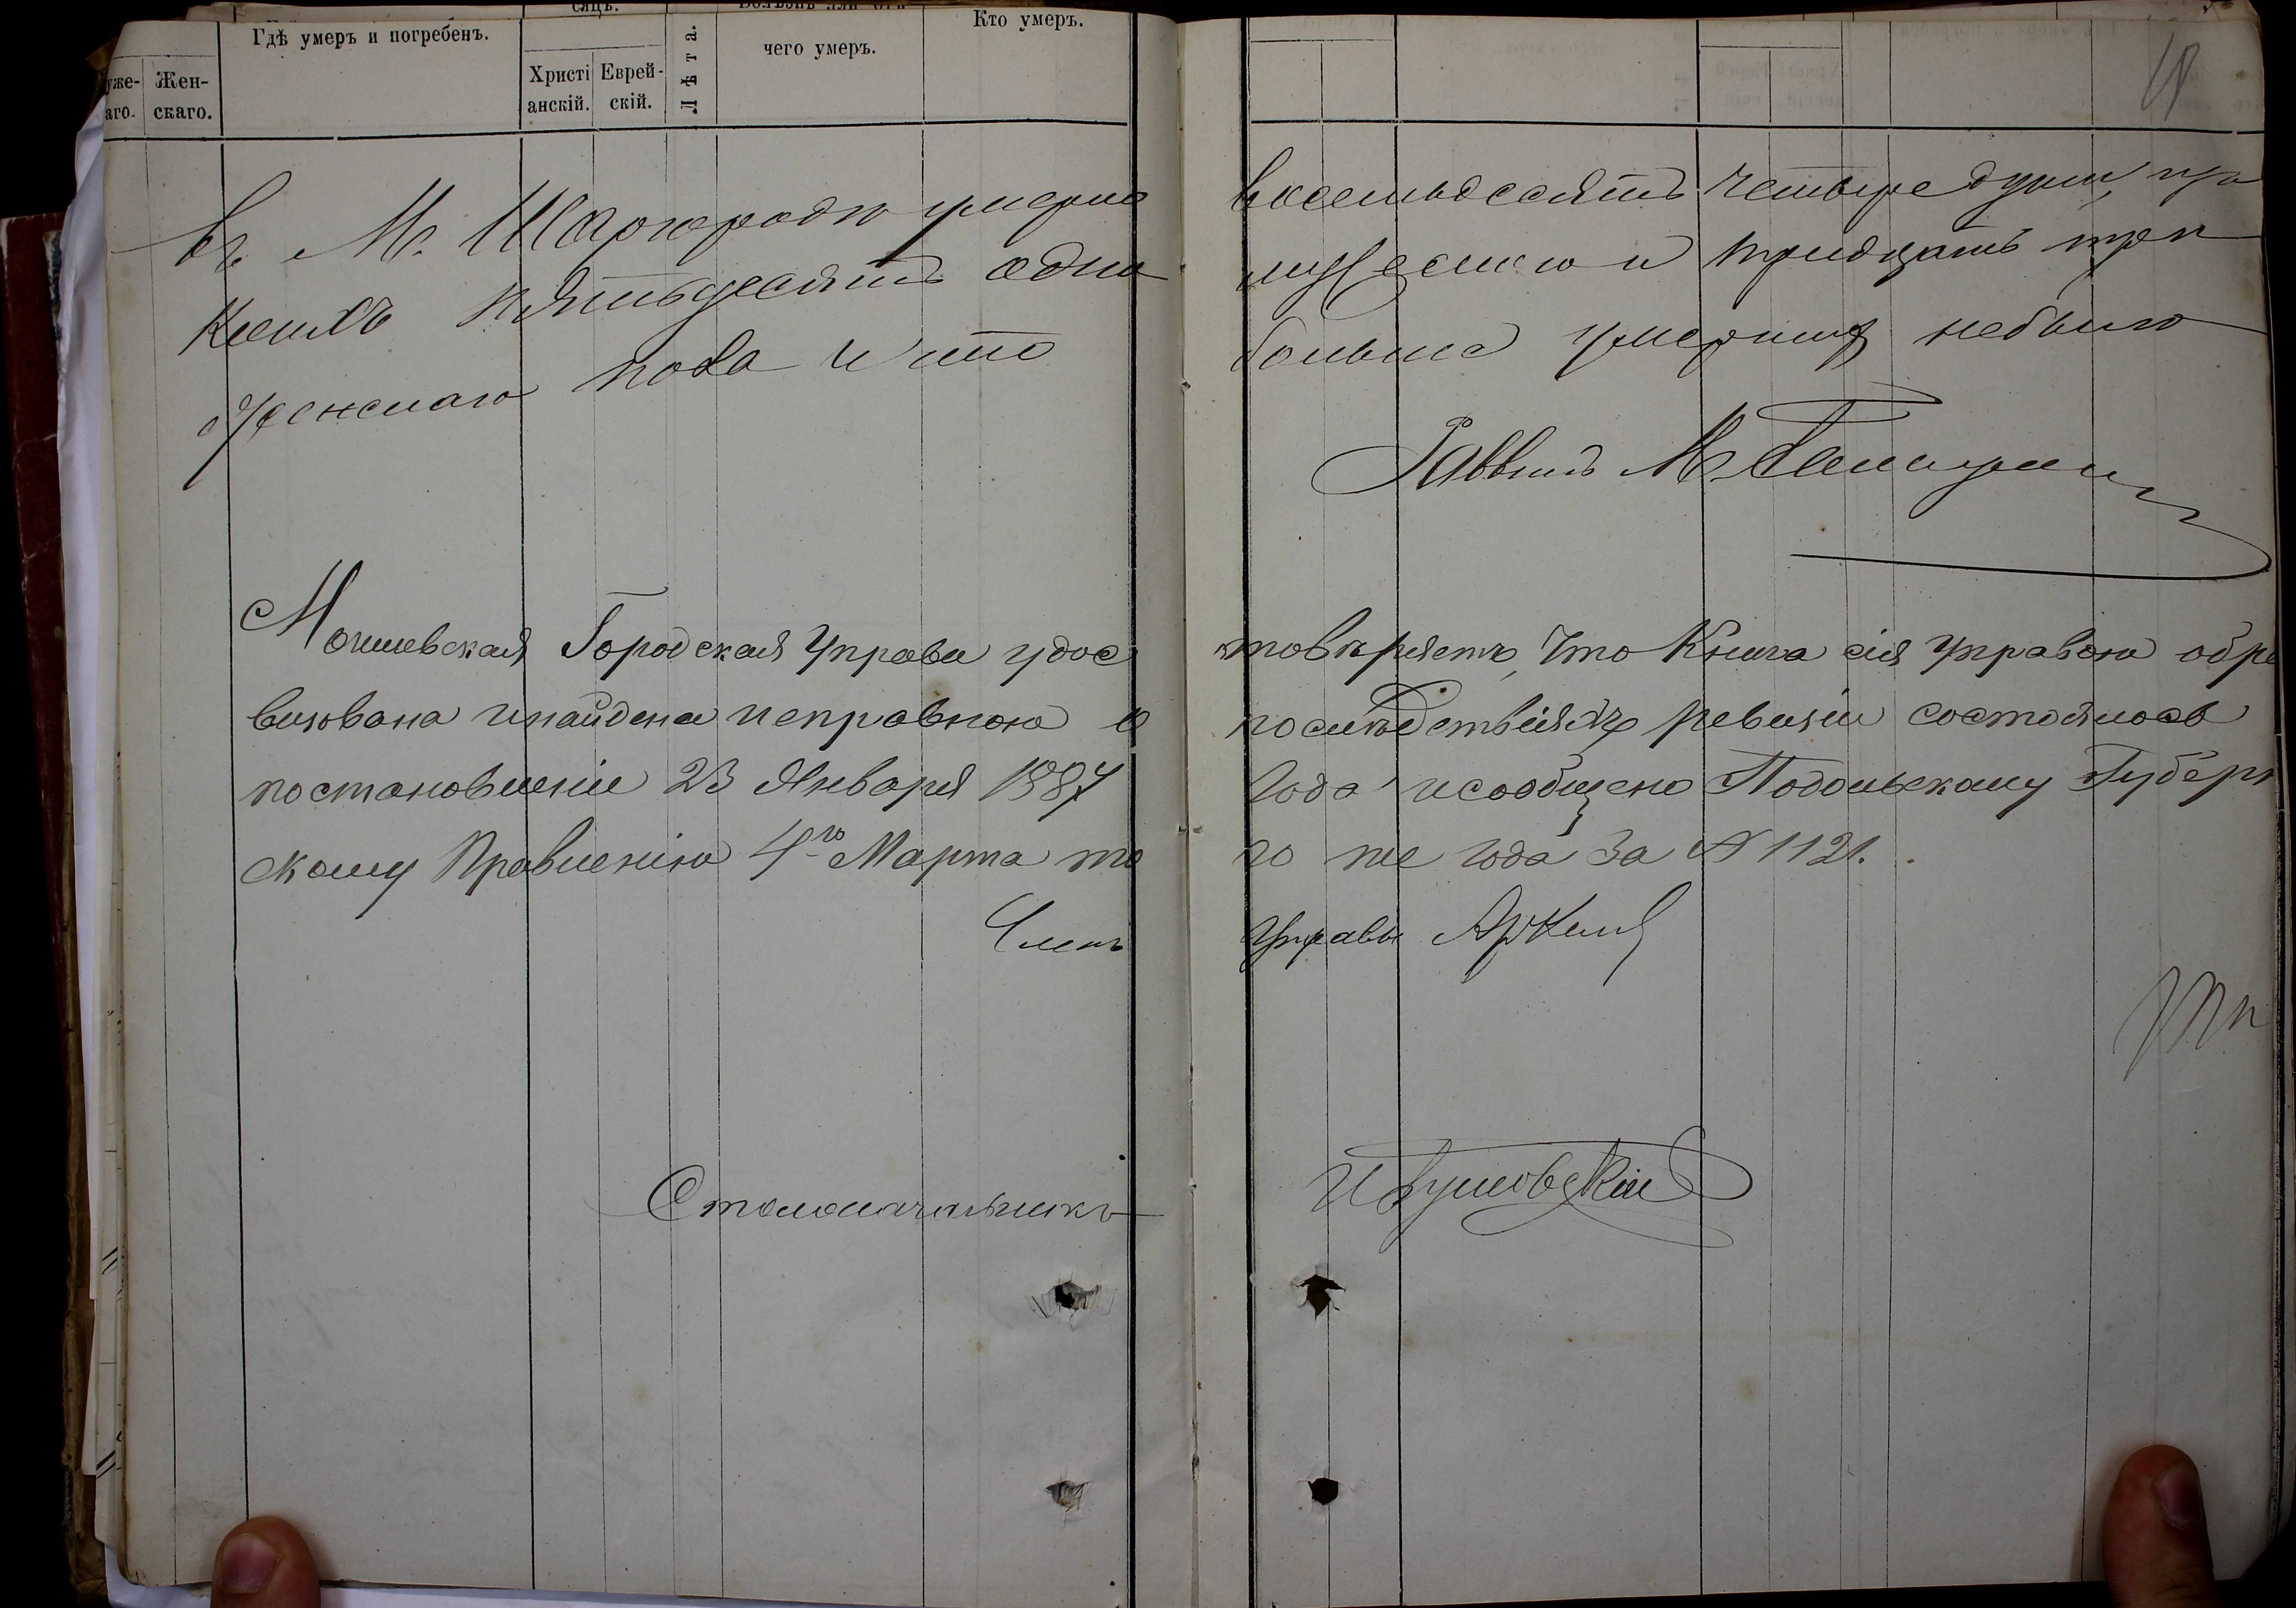 Гдѣ умеръ и погребенъ.
сяцъ.
Христіанскій.
Еврейскій.
Лѣта.
чего умеръ.
Кто умеръ.
Женскаго.
въ М. Шаргородѣ умерло восемьдесятъ четыре души, изъ
коихъ пятьдесятъ одна мужескаго и тридцать три
женскаго пола и что больше умершихъ небыло
Раввинъ М.
Могилевская Городская Управа удостовѣряетъ, что Книга сія Управою обре
визована инайдена исправною о послѣдствіяхъ ревизіи состоялось
постановленіе 23 Января 1887 Года исообщено Подольскому Губерн
скому Правленію 4го Марта того же года за № 1121.
Членъ Управы
Столоначальникъ